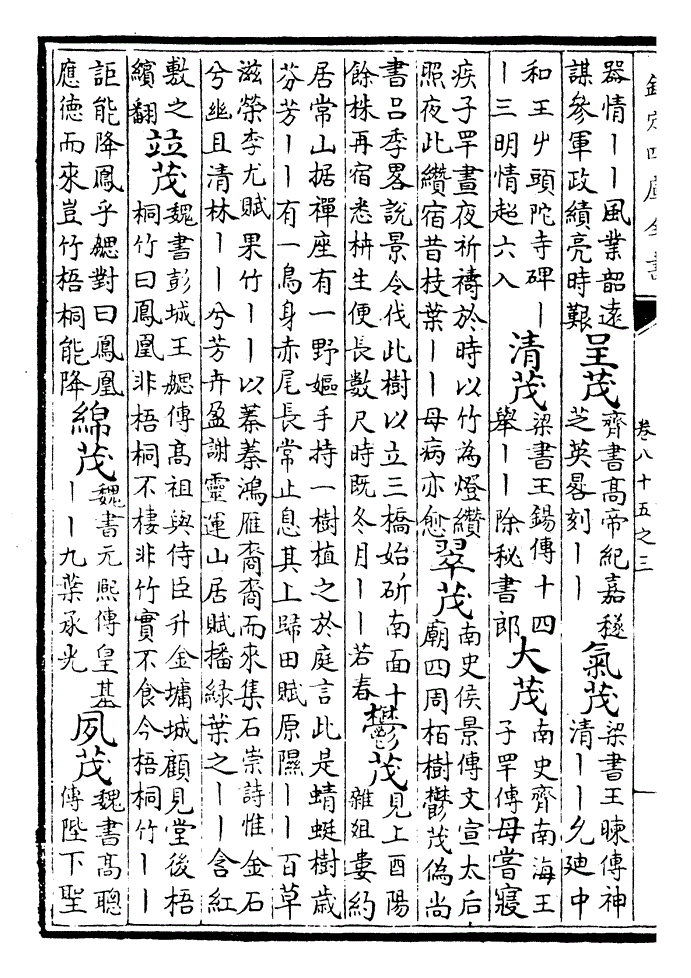 欽定四庫全書
卷八十五之三
器情丨丨風業韶遠
謀參軍政績亮時艱
呈茂
齊書高帝紀嘉穟
芝英晷刻丨丨
氣茂
梁書王暕傳神
清丨丨允廸中
和王屮頭陀寺碑丨
丨三明情超六入
清茂
梁書王錫傳十四
舉丨丨除秘書郎
大茂
南史齊南海王
子罕傳母嘗寢
疾子罕晝夜祈禱於時以竹為燈纘
照夜此纘宿昔枝葉丨丨母病亦愈
翠茂
南史侯景傳文宣太后
廟四周栢樹鬱茂偽尚
書呂季畧說景令伐此樹以立三橋始斫南面十
餘株再宿悉枿生便長數尺時既冬月丨丨若春
鬱茂
見上酉陽
雜俎婁約
居常山据禪座有一野嫗手持一樹植之於庭言此是蜻蜓樹歲
芬芳丨丨有一鳥身赤尾長常止息其上歸田賦原隰丨丨百草
滋榮李尤賦果竹丨丨以蓁蓁鴻雁裔裔而來集石崇詩惟金石
兮幽且清林丨丨兮芳卉盈謝靈運山居賦播綠葉之丨丨含紅
敷之
繽翻
竝茂
魏書彭城王勰傳高祖與侍臣升金墉城顧見堂後梧
桐竹曰鳳凰非梧桐不棲非竹實不食今梧桐竹丨丨
詎能降鳳乎勰對曰鳳凰
應德而來豈竹梧桐能降
綿茂
魏書元熙傳皇基
丨丨九葉承光
夙茂
魏書高聰
傳陛下聖